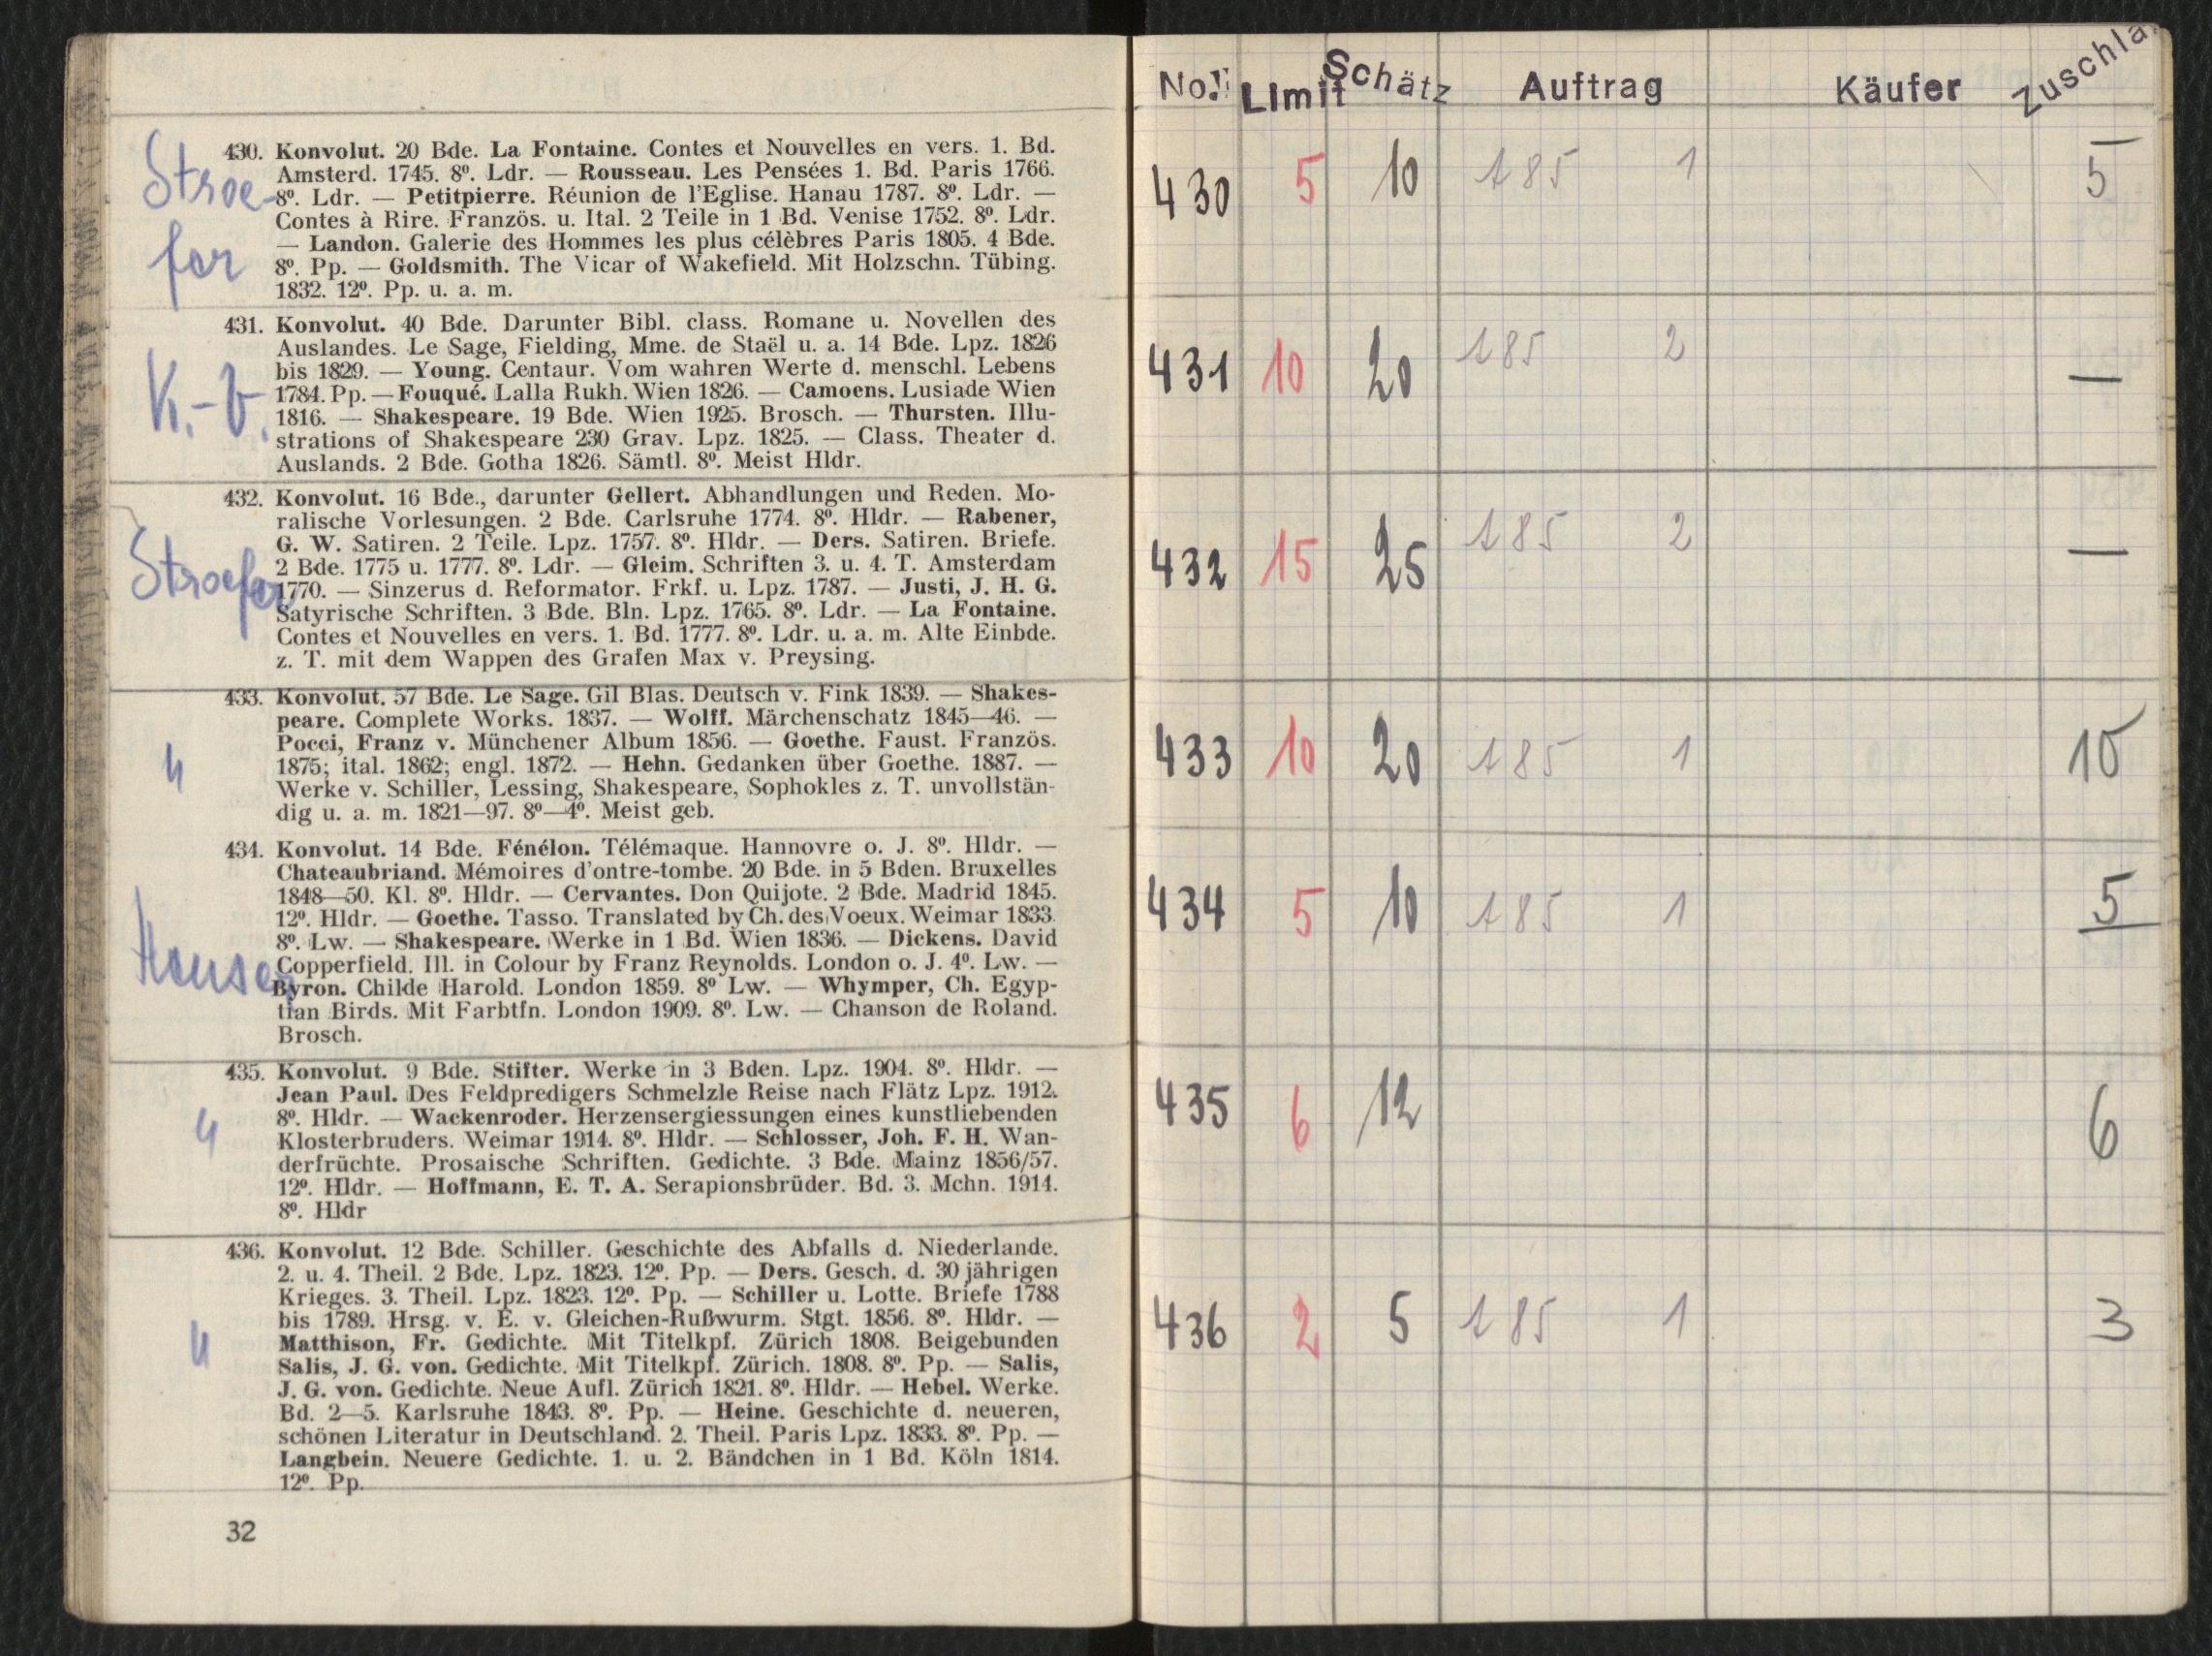 430. Konvolut. 20 Bde. La Fontaine. Contes et Nouvelles en vers. 1. Bd.
Amsterd. 1745. 8º. Ldr. — Rousseau. Les Pensées 1. Bd. Paris 1766.
8º. Ldr. — Petitpierre. Réunion de l'Eglise. Hanau 1787. 8º. Ldr. —
Contes à Rire. Französ. u. Ital. 2 Teile in 1 Bd. Venise 1752. 8º. Ldr.
— Landon. Galerie des Hommes les plus célèbres Paris 1805. 4 Bde.
8º. Pp. — Goldsmith. The Vicar of Wakefield. Mit Holzschn. Tübing.
1832. 12º. Pp. u. a. m.
Stroe-
fer
431. Konvolut. 40 Bde. Darunter Bibl. class. Romane u. Novellen des
Auslandes. Le Sage, Fielding, Mme. de Staël u. a. 14 Bde. Lpz. 1826
bis 1829. — Young. Centaur. Vom wahren Werte d. menschl. Lebens
1784. Pp. — Fouqué. Lalla Rukh. Wien 1826. — Camoens. Lusiade Wien
1816. — Shakespeare. 19 Bde. Wien 1925. Brosch. — Thursten. Illu-
strations of Shakespeare 230 Grav. Lpz. 1825. — Class. Theater d.
Auslands. 2 Bde. Gotha 1826. Sämtl. 8º. Meist Hldr.
K.-b.
432. Konvolut. 16 Bde., darunter Gellert. Abhandlungen und Reden. Mo-
ralische Vorlesungen. 2 Bde. Carlsruhe 1774. 8º. Hldr. — Rabener,
G. W. Satiren. 2 Teile. Lpz. 1757. 8º. Hldr. — Ders. Satiren. Briefe.
2 Bde. 1775 u. 1777. 8º. Ldr. — Gleim. Schriften 3. u. 4. T. Amsterdam
1770. — Sinzerus d. Reformator. Frkf. u. Lpz. 1787. — Justi, J. H. G.
Satyrische Schriften. 3 Bde. Bln. Lpz. 1765. 8º. Ldr. — La Fontaine.
Contes et Nouvelles en vers. 1. Bd. 1777. 8º. Ldr. u. a. m. Alte Einbde.
z. T. mit dem Wappen des Grafen Max v. Preysing.
Stroefer
433. Konvolut. 57 Bde. Le Sage. Gil Blas. Deutsch v. Fink 1839. — Shakes-
peare. Complete Works. 1837. — Wolff. Märchenschatz 1845—46. —
Pocci, Franz v. Münchener Album 1856. — Goethe. Faust. Französ.
1875; ital. 1862; engl. 1872. — Hehn. Gedanken über Goethe. 1887. —
Werke v. Schiller, Lessing, Shakespeare, Sophokles z. T. unvollstän-
dig u. a. m. 1821—97. 8º—4º. Meist geb.
434. Konvolut. 14 Bde. Fénélon. Télémaque. Hannovre o. J. 8º. Hldr. —
Chateaubriand. Mémoires d'ontre-tombe. 20 Bde. in 5 Bden. Bruxelles
1848—50. Kl. 8º. Hldr. — Cervantes. Don Quijote. 2 Bde. Madrid 1845.
12º. Hldr. — Goethe. Tasso. Translated by Ch. des Voeux. Weimar 1833.
8º. Lw. — Shakespeare. Werke in 1 Bd. Wien 1836. — Dickens. David
Copperfield. Ill. in Colour by Franz Reynolds. London o. J. 4º. Lw. —
Byron. Childe Harold. London 1859. 8º Lw. — Whymper, Ch. Egyp-
tian Birds. Mit Farbtfn. London 1909. 8º. Lw. — Chanson de Roland.
Brosch.
435. Konvolut. 9 Bde. Stifter. Werke in 3 Bden. Lpz. 1904. 8º. Hldr. —
Jean Paul. Des Feldpredigers Schmelzle Reise nach Flätz Lpz. 1912.
8º. Hldr. — Wackenroder. Herzensergiessungen eines kunstliebenden
Klosterbruders. Weimar 1914. 8º. Hldr. — Schlosser, Joh. F. H. Wan-
derfrüchte. Prosaische Schriften. Gedichte. 3 Bde. Mainz 1856/57.
12º. Hldr. — Hoffmann, E. T. A. Serapionsbrüder. Bd. 3. Mchn. 1914.
8º. Hldr
436. Konvolut. 12 Bde. Schiller. Geschichte des Abfalls d. Niederlande.
2. u. 4. Theil. 2 Bde. Lpz. 1823. 12º. Pp. — Ders. Gesch. d. 30 jährigen
Krieges. 3. Theil. Lpz. 1823. 12º. Pp. — Schiller u. Lotte. Briefe 1788
bis 1789. Hrsg. v. E. v. Gleichen-Rußwurm. Stgt. 1856. 8º. Hldr. —
Matthison, Fr. Gedichte. Mit Titelkpf. Zürich 1808. Beigebunden
Salis, J. G. von. Gedichte. Mit Titelkpf. Zürich. 1808. 8º. Pp. — Salis,
J. G. von. Gedichte. Neue Aufl. Zürich 1821. 8º. Hldr. — Hebel. Werke.
Bd. 2—5. Karlsruhe 1843. 8º. Pp. — Heine. Geschichte d. neueren,
schönen Literatur in Deutschland. 2. Theil. Paris Lpz. 1833. 8º. Pp. —
Langbein. Neuere Gedichte. 1. u. 2. Bändchen in 1 Bd. Köln 1814.
12º. Pp.
32
No. Limit Schätz Auftrag Käufer Zuschla
430 5 10 185 1 5
431 10 20 185 2 —
432 15 25 185 2 —
433 10 20 185 1 10
434 5 10 185 1 5
435 6 12 6
436 2 5 185 1 3